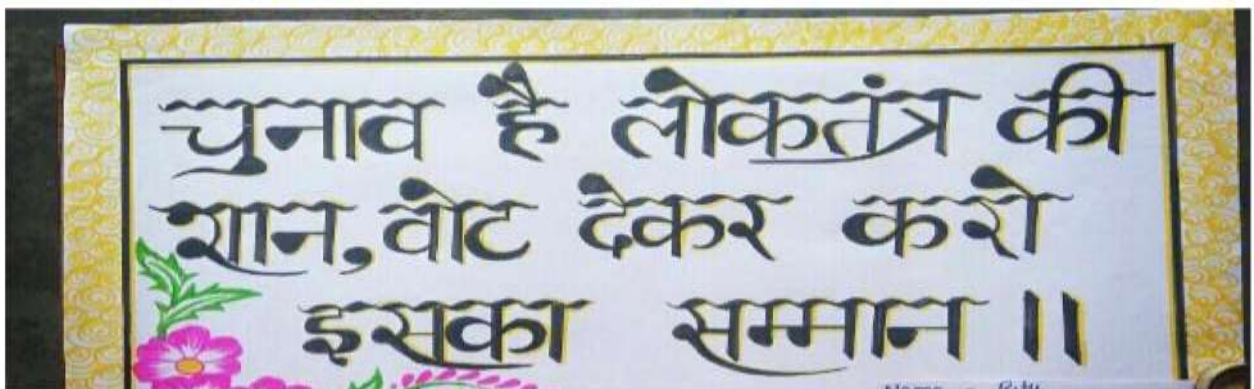 चुनाव है लोकतंत्र की
शान, वोट देकर करो
इसका सम्मान ॥